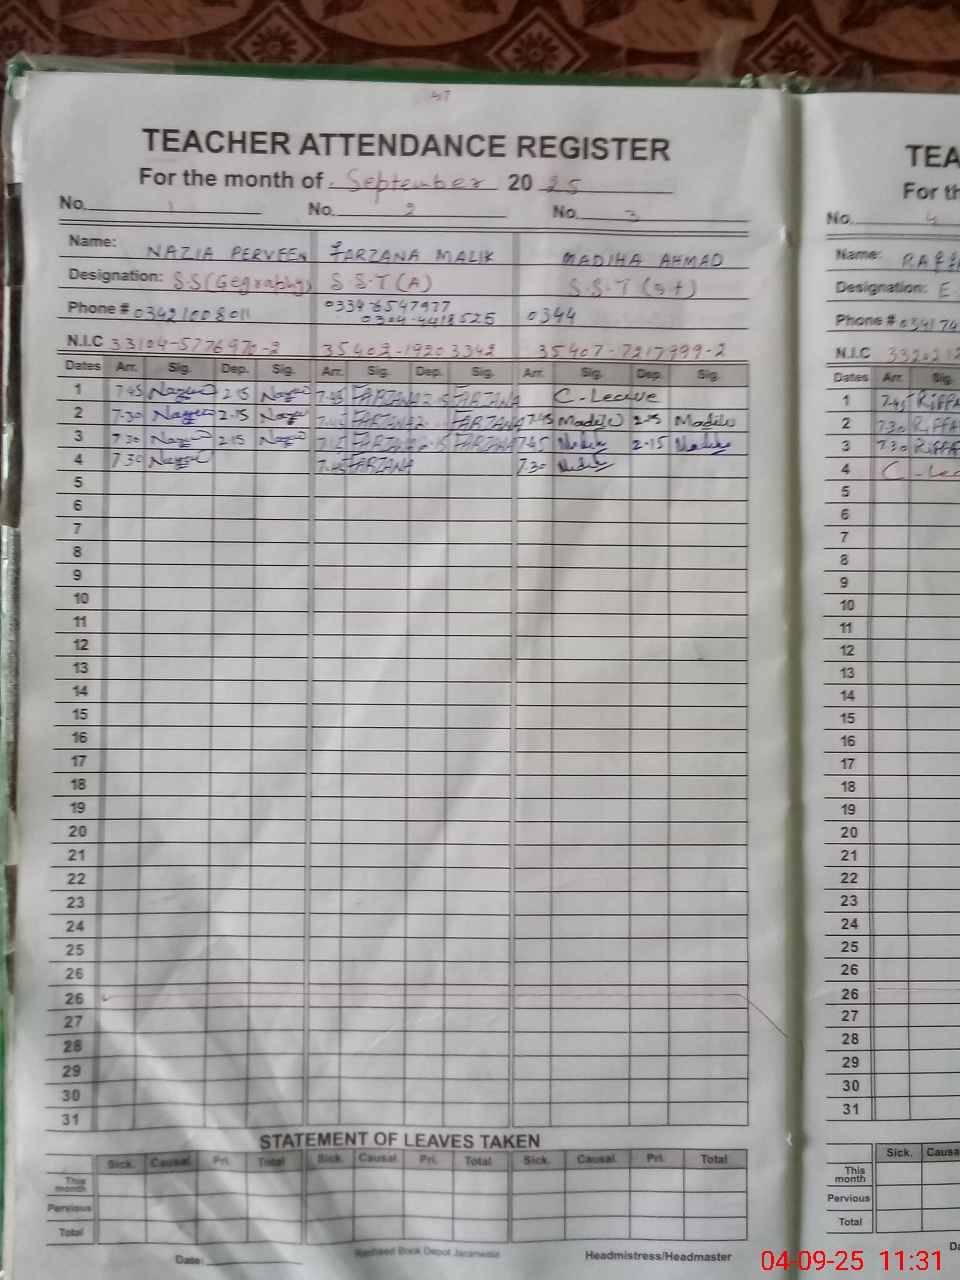 TEACHER ATTENDANCE REGISTER
For the month of September 20 25
No. 1 No. 2 No. 3
Name: NAZIA PERVEEN FARZANA MALIK MADIHA AHMAD
Designation: S.S (Geography) S.S.T (A) S.S.T
Phone # 03421008011 0344
N.I.C
Dates Arr. Sig. Dep. Sig. Arr. Sig. Dep. Sig. Arr. Sig. Dep. Sig.
1 7.45 2.15 7.45 FARZANA 2.15 FARZANA C-Leave
2 7.30 2.15 FARZANA FARZANA 7.45 2.15
3 7.30 2.15 7.15 FARZANA 2.15 FARZANA 7.45 2-15
4 7.30 7.45 FARZANA 7.30
5
6
7
8
9
10
11
12
13
14
15
16
17
18
19
20
21
22
23
24
25
26
26
27
28
29
30
31
STATEMENT OF LEAVES TAKEN
Sick. Causal. Pri. Total Sick. Causal. Pri. Total Sick. Causal. Pri. Total
This month
Pervious
Total
Date: Rasheed Book Depot Jaranwala Headmistress/Headmaster
TEA
For th
No. 4
Name:
Designation: E
Phone #
N.I.C
Dates Arr. Sig.
1 7.45 RIFFA
2 7.30 RIFFA
3 7.30 RIFFA
4 C-Lea
5
6
7
8
9
10
11
12
13
14
15
16
17
18
19
20
21
22
23
24
25
26
26
27
28
29
30
31
Sick. Causa
This month
Pervious
Total
04-09-25 11:31